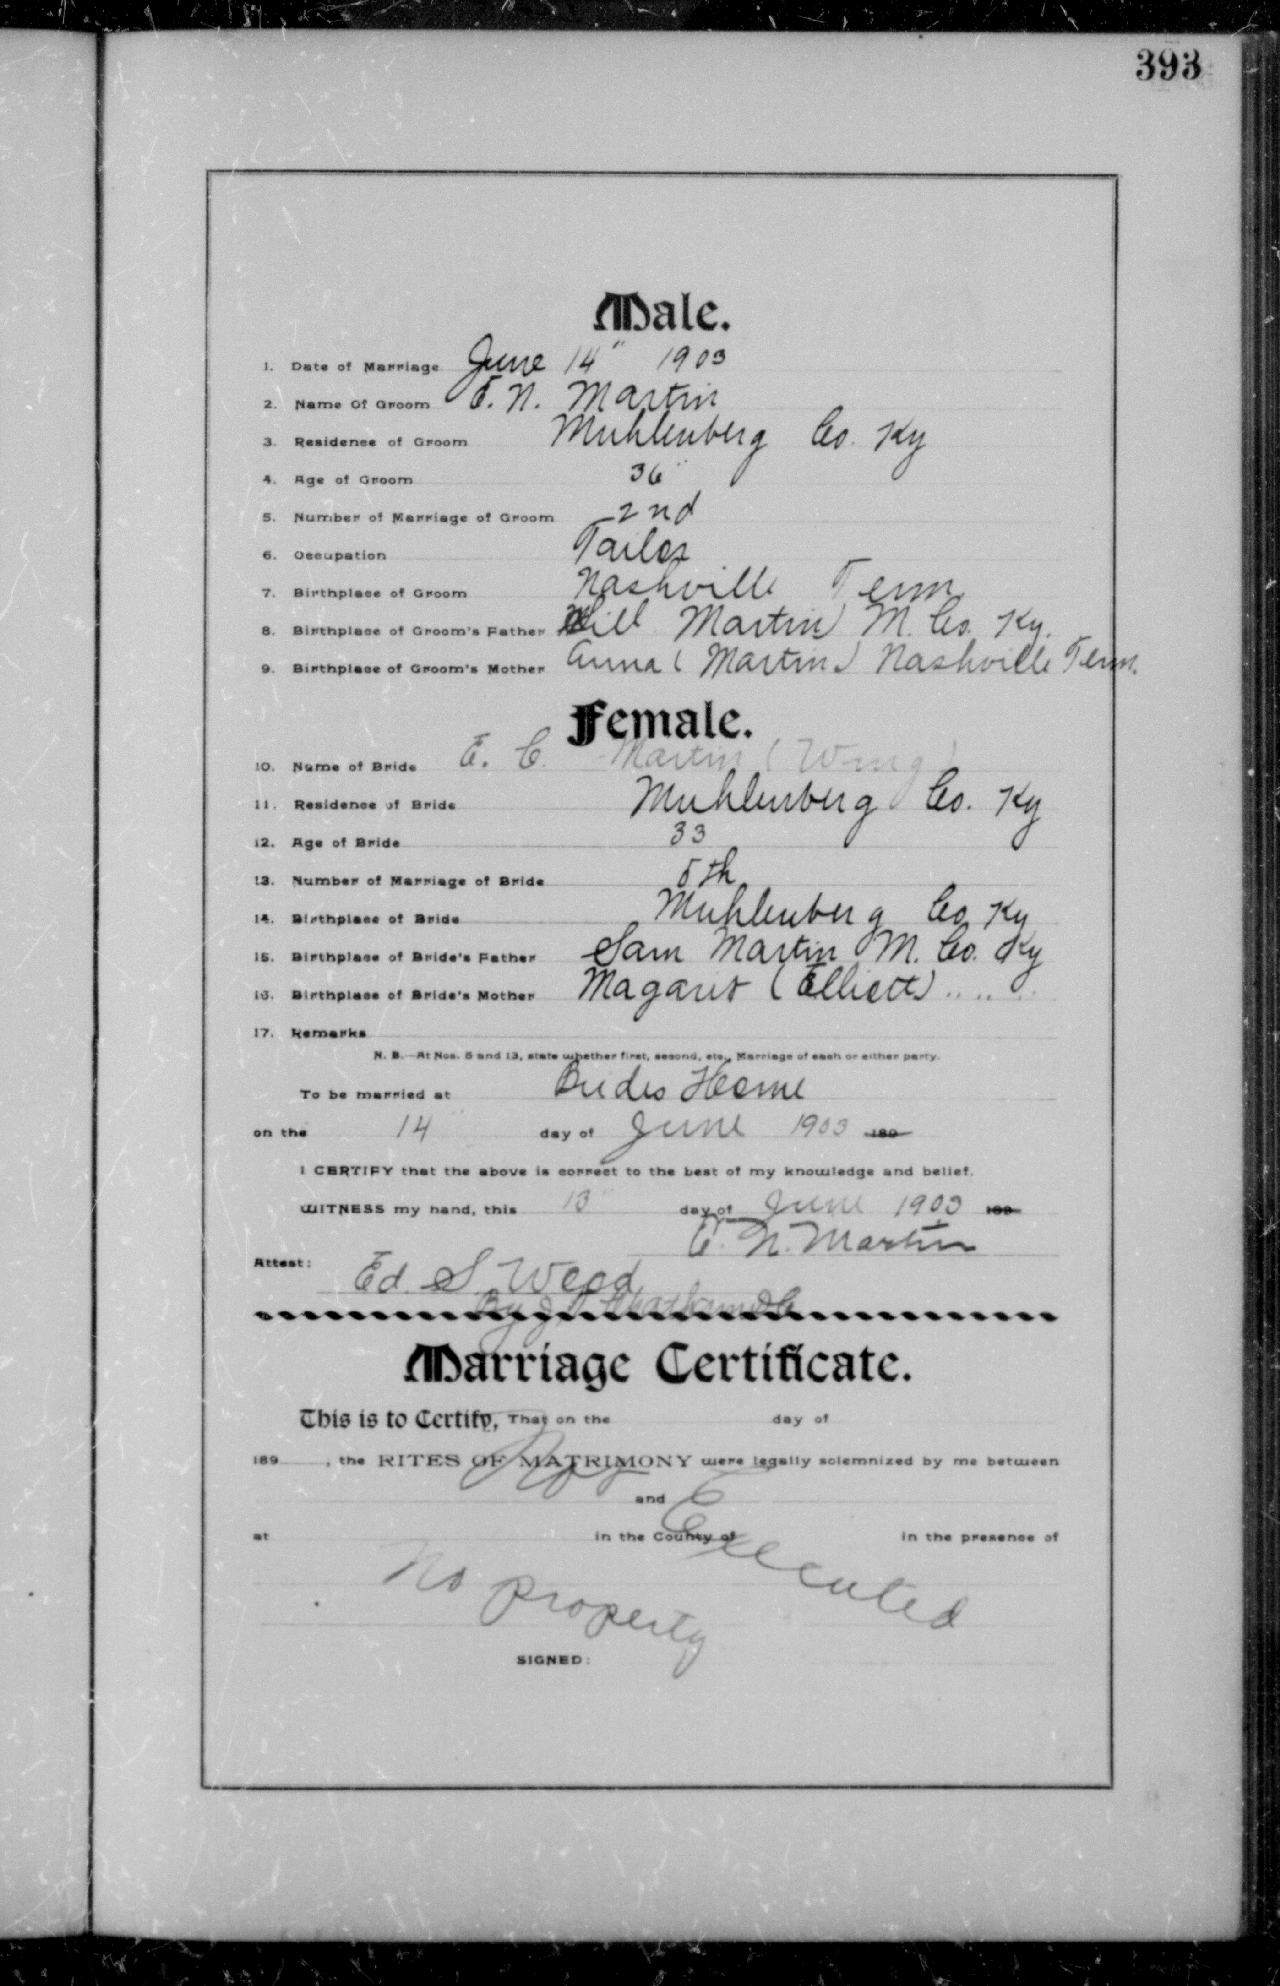 393
Male.
1. Date of Marriage June 14" 1903
2. Name Of Groom E. N. Martin
3. Residence of Groom Muhlenberg Co. Ky
4. Age of Groom 36
5. Number of Marriage of Groom 2nd
6. Occupation Tailor
7. Birthplace of Groom Nashville Tenn
8. Birthplace of Groom's Father Will Martin M. Co. Ky.
9. Birthplace of Groom's Mother Anna (Martin) Nashville Tenn.
Female.
10. Name of Bride E. C. Martin (Wing)
11. Residence of Bride Muhlenberg Co. Ky
12. Age of Bride 33
13. Number of Marriage of Bride 5th
14. Birthplace of Bride Muhlenberg Co. Ky
15. Birthplace of Bride's Father Sam Martin M. Co. Ky
16. Birthplace of Bride's Mother Magaret (Elliott) " " "
17. Remarks
N. B.—At Nos. 5 and 13, state whether first, second, etc., Marriage of each or either party.
To be married at Brides Home
on the 14" day of June 1903 189
I CERTIFY that the above is correct to the best of my knowledge and belief.
WITNESS my hand, this 13" day of June 1903 189
E. N. Martin
Attest: Ed. S. Wood
By J. DC
Marriage Certificate.
This is to Certify, That on the day of
189 , the RITES OF MATRIMONY were legally solemnized by me between
and
at in the County of in the presence of
Not Executed
No property
SIGNED: